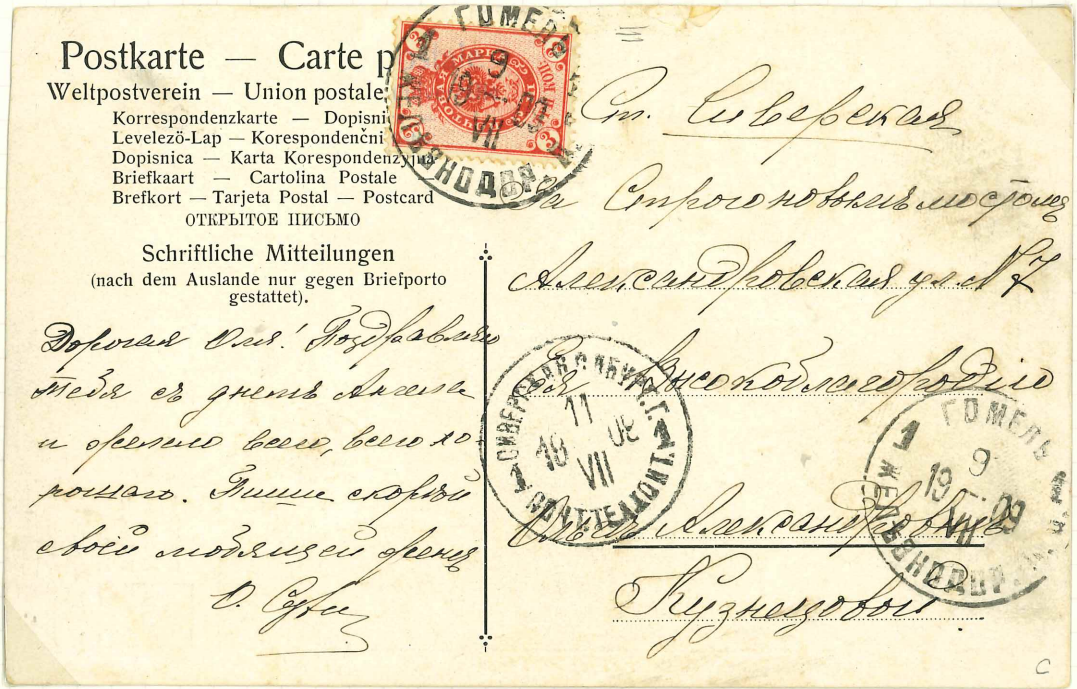 Postkarte — Carte p
Weltpostverein — Union postale
Korrespondenzkarte — Dopisni
Levelezö-Lap — Korespondenčni
Dopisnica — Karta Korespondenzyjna
Briefkaart — Cartolina Postale
Brefkort — Tarjeta Postal — Postcard
ОТКРЫТОЕ ПИСЬМО
Schriftliche Mitteilungen
(nach dem Auslande nur gegen Briefporto
gestattet).
Дорогая Оля! Поздравляю
тебя съ днемъ Ангела
и желаю всего, всего хо-
рошаго. Пиши скорѣй
своей любящей
О.
ГОМЕЛЬ
1
9
VII
3
МАРК
Ст. Сиверская
За Строгоновымъ мостомъ
Александровская ул. № 7
Ея Высокоблагородію
Александровнѣ
Кузнецовой
СИВЕРСКАЯ С.ПБУРГ. Г.
11
VII
1
ПОЧТ. ТЕЛ.
ГОМЕЛЬ
1
9
19 — 09
VII
C